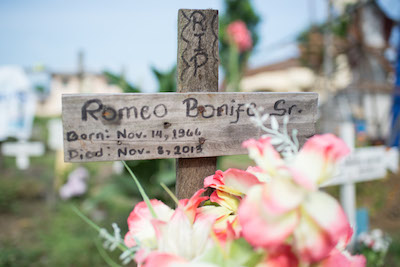 RIP
Romeo Bonife Sr.
Born: Nov. 14, 1966
Died: Nov. 8, 2013